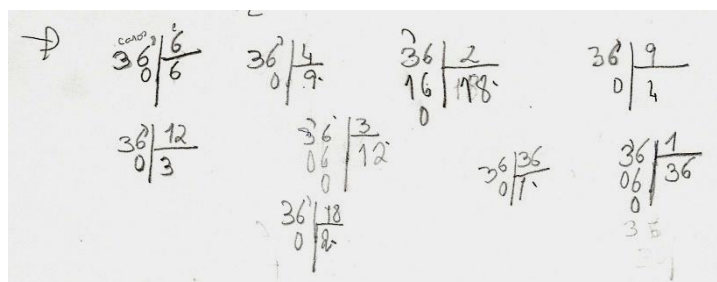 36 | 6
0 | 6
36 | 4
0 | 9
36 | 2
16 | 18
0
36 | 9
0 | 4
36 | 12
0 | 3
36 | 3
06 | 12
0
36 | 36
0 | 1
36 | 1
06 | 36
0
36 | 18
0 | 2